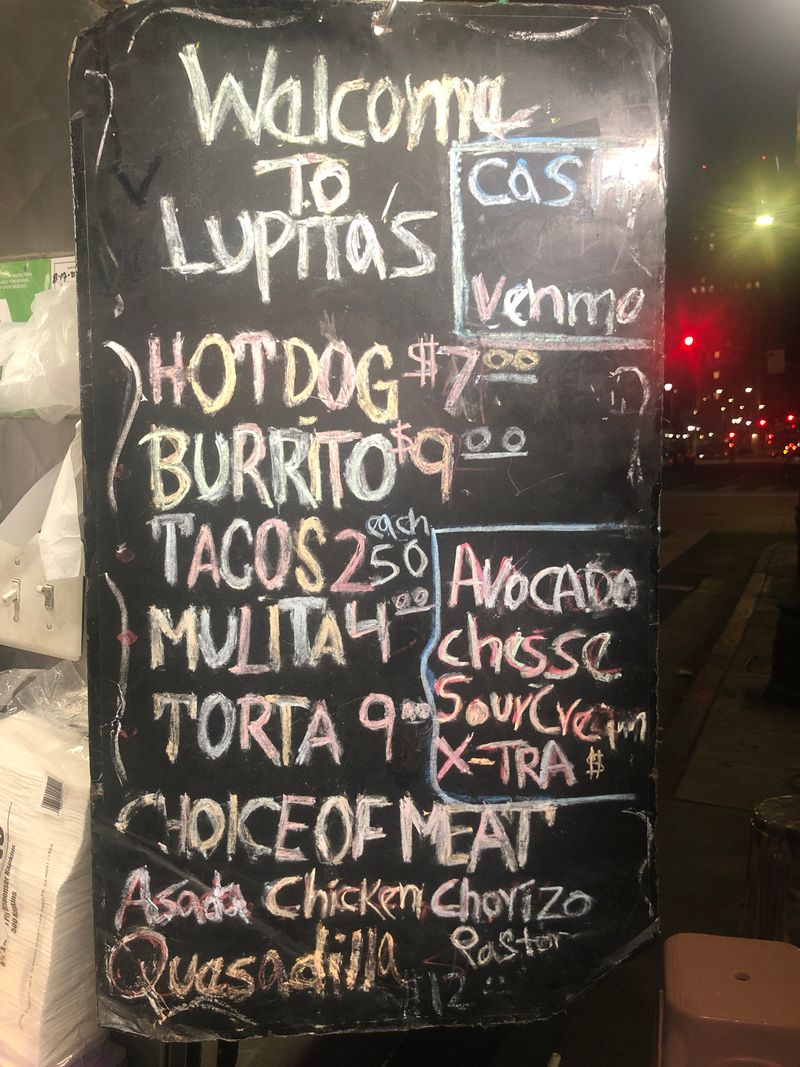 Welcome
TO
LUPITA'S
CASH
Venmo
HOTDOG $7.00
BURRITO $9.00
TACOS 2.50 each
MULITA 4.00
TORTA 9.00
AVOCADO
chesse
SourCream
X-TRA $
CHOICE OF MEAT
Asada Chicken Chorizo
Pastor
Quesadilla $12
500 Napkins